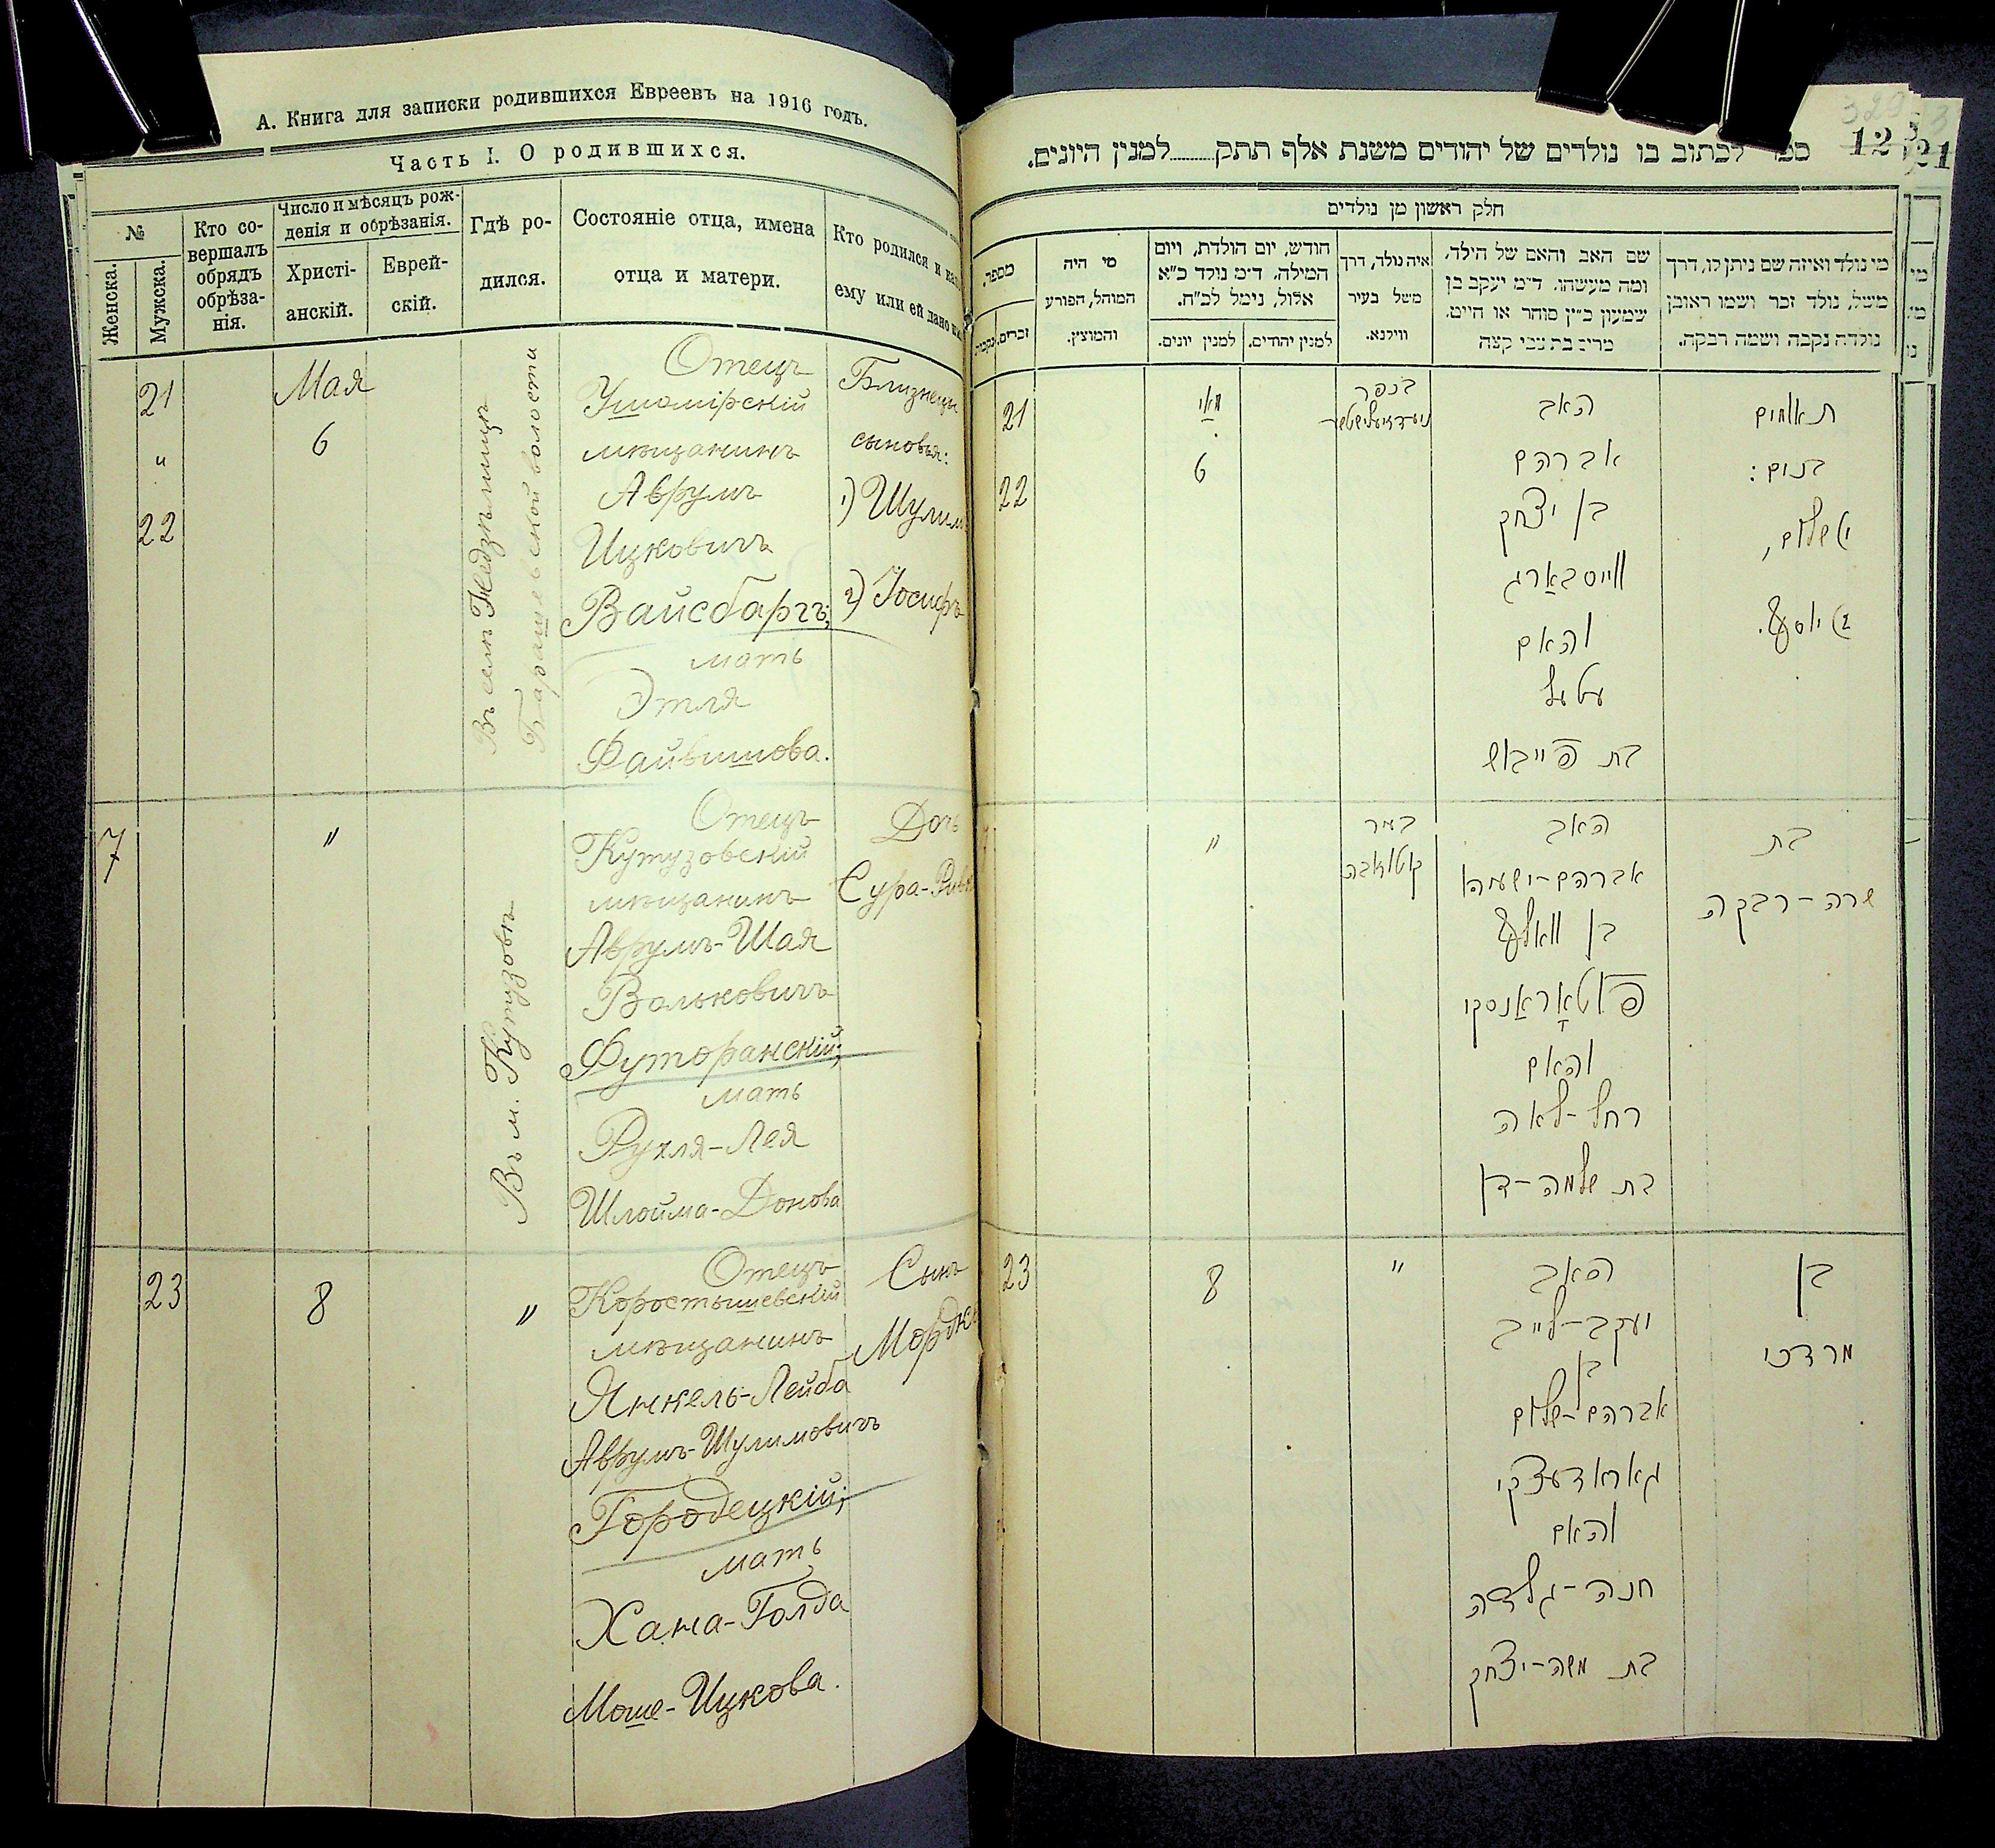 А. Книга для записки родившихся Евреевъ на 1916 годъ.
Часть I. О родившихся.
№
Женска.
Мужска.
Кто со-
вершалъ
обрядъ
обрѣза-
нія.
Число и мѣсяцъ рож-
денія и обрѣзанія.
Христі-
анскій.
Еврей-
скій.
Гдѣ ро-
дился.
Состояніе отца, имена
отца и матери.
Кто родился и
ему или ей дано
21
"
22
Мая
6
Въ селѣ
Барашевской волости
Отецъ
Ушомірскій
мѣщанинъ
Аврумъ
Ицковичъ
Вайсбаргъ;
мать
Этля
Файвишова.
Близнецы
сыновья:
1) Шулим
2) Іосифъ
7
"
Въ м. Кутузовѣ
Отецъ
Кутузовскій
мѣщанинъ
Аврумъ-Шая
Вольковичъ
Футоранскій;
мать
Рухля-Лея
Шлойма-Донова
Дочь
Сура-Ривк
23
8
"
Отецъ
Коростышевскій
мѣщанинъ
Янкель-Лейба
Аврумъ-Шулимовичъ
Городецкій;
мать
Хана-Голда
Моше-Ицкова.
Сынъ
Мордко
12
21
לכתוב בו נולדים של יהודים משנת אלף תתק למנין היונים.
חלק ראשון מן נולדים
מי נולד ואיזה שם ניתן לו, דרך
משל, נולד זכר ושמו ראובן
נולדה נקבה ושמה רבקה.
שם האב והאם של הילד,
ומה מעשהו, ד״מ יעקב בן
שמעון כ״ץ סוחר או חייט,
מרים בת צבי קצה
איה נולד, דרך
משל בעיר
ווילנא.
חודש, יום הולדת, ויום
המילה, ד״מ נולד כ״א
אלול, נימל לכ״ח.
למנין יהודים.
למנין יונים.
מי היה
המוהל, הפורע
והמוצץ.
מספר.
זכרים.
תאומים
בנים:
שלום,
יוסף.
האב
אברהם
בן יצחק
ווייסבארג
והאם
עטעל
בת פייבוש
בכפר
מאי
6
21
22
בת
שרה-רבקה
האב
אברהם-ישעיהו
בן וואלף
פוטאָראַנסקי
והאם
רחל-לאה
בת שלמה-דן
"
בן
מרדכי
האב
יעקב-לייב
בן
אברהם-שלום
גאראדעצקי
והאם
חנה-גולדה
בת משה-יצחק
"
8
23